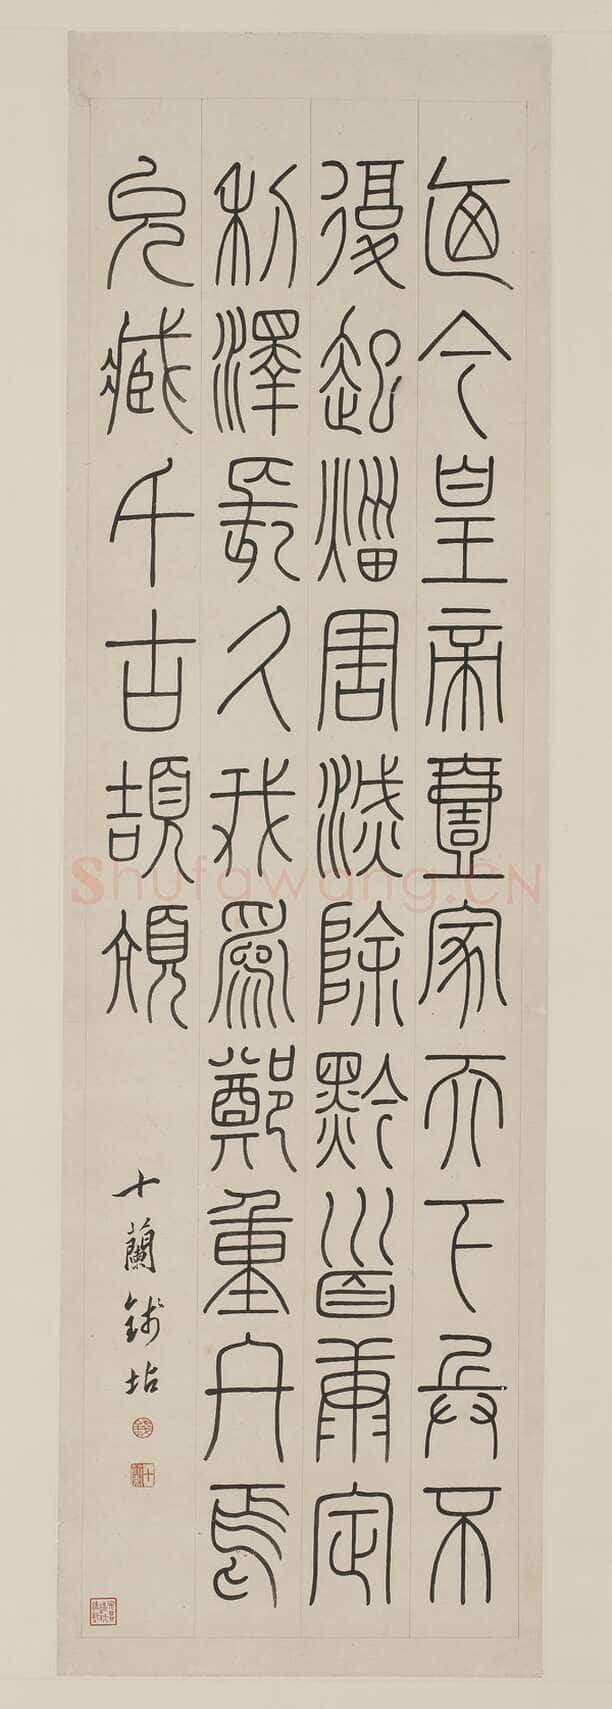 廼今皇帝壹家天下兵不
復起災害滅除黔首康定
利澤長久我爲鄭重
藏千古頡頏
十蘭錢坫
Shufawang.CN